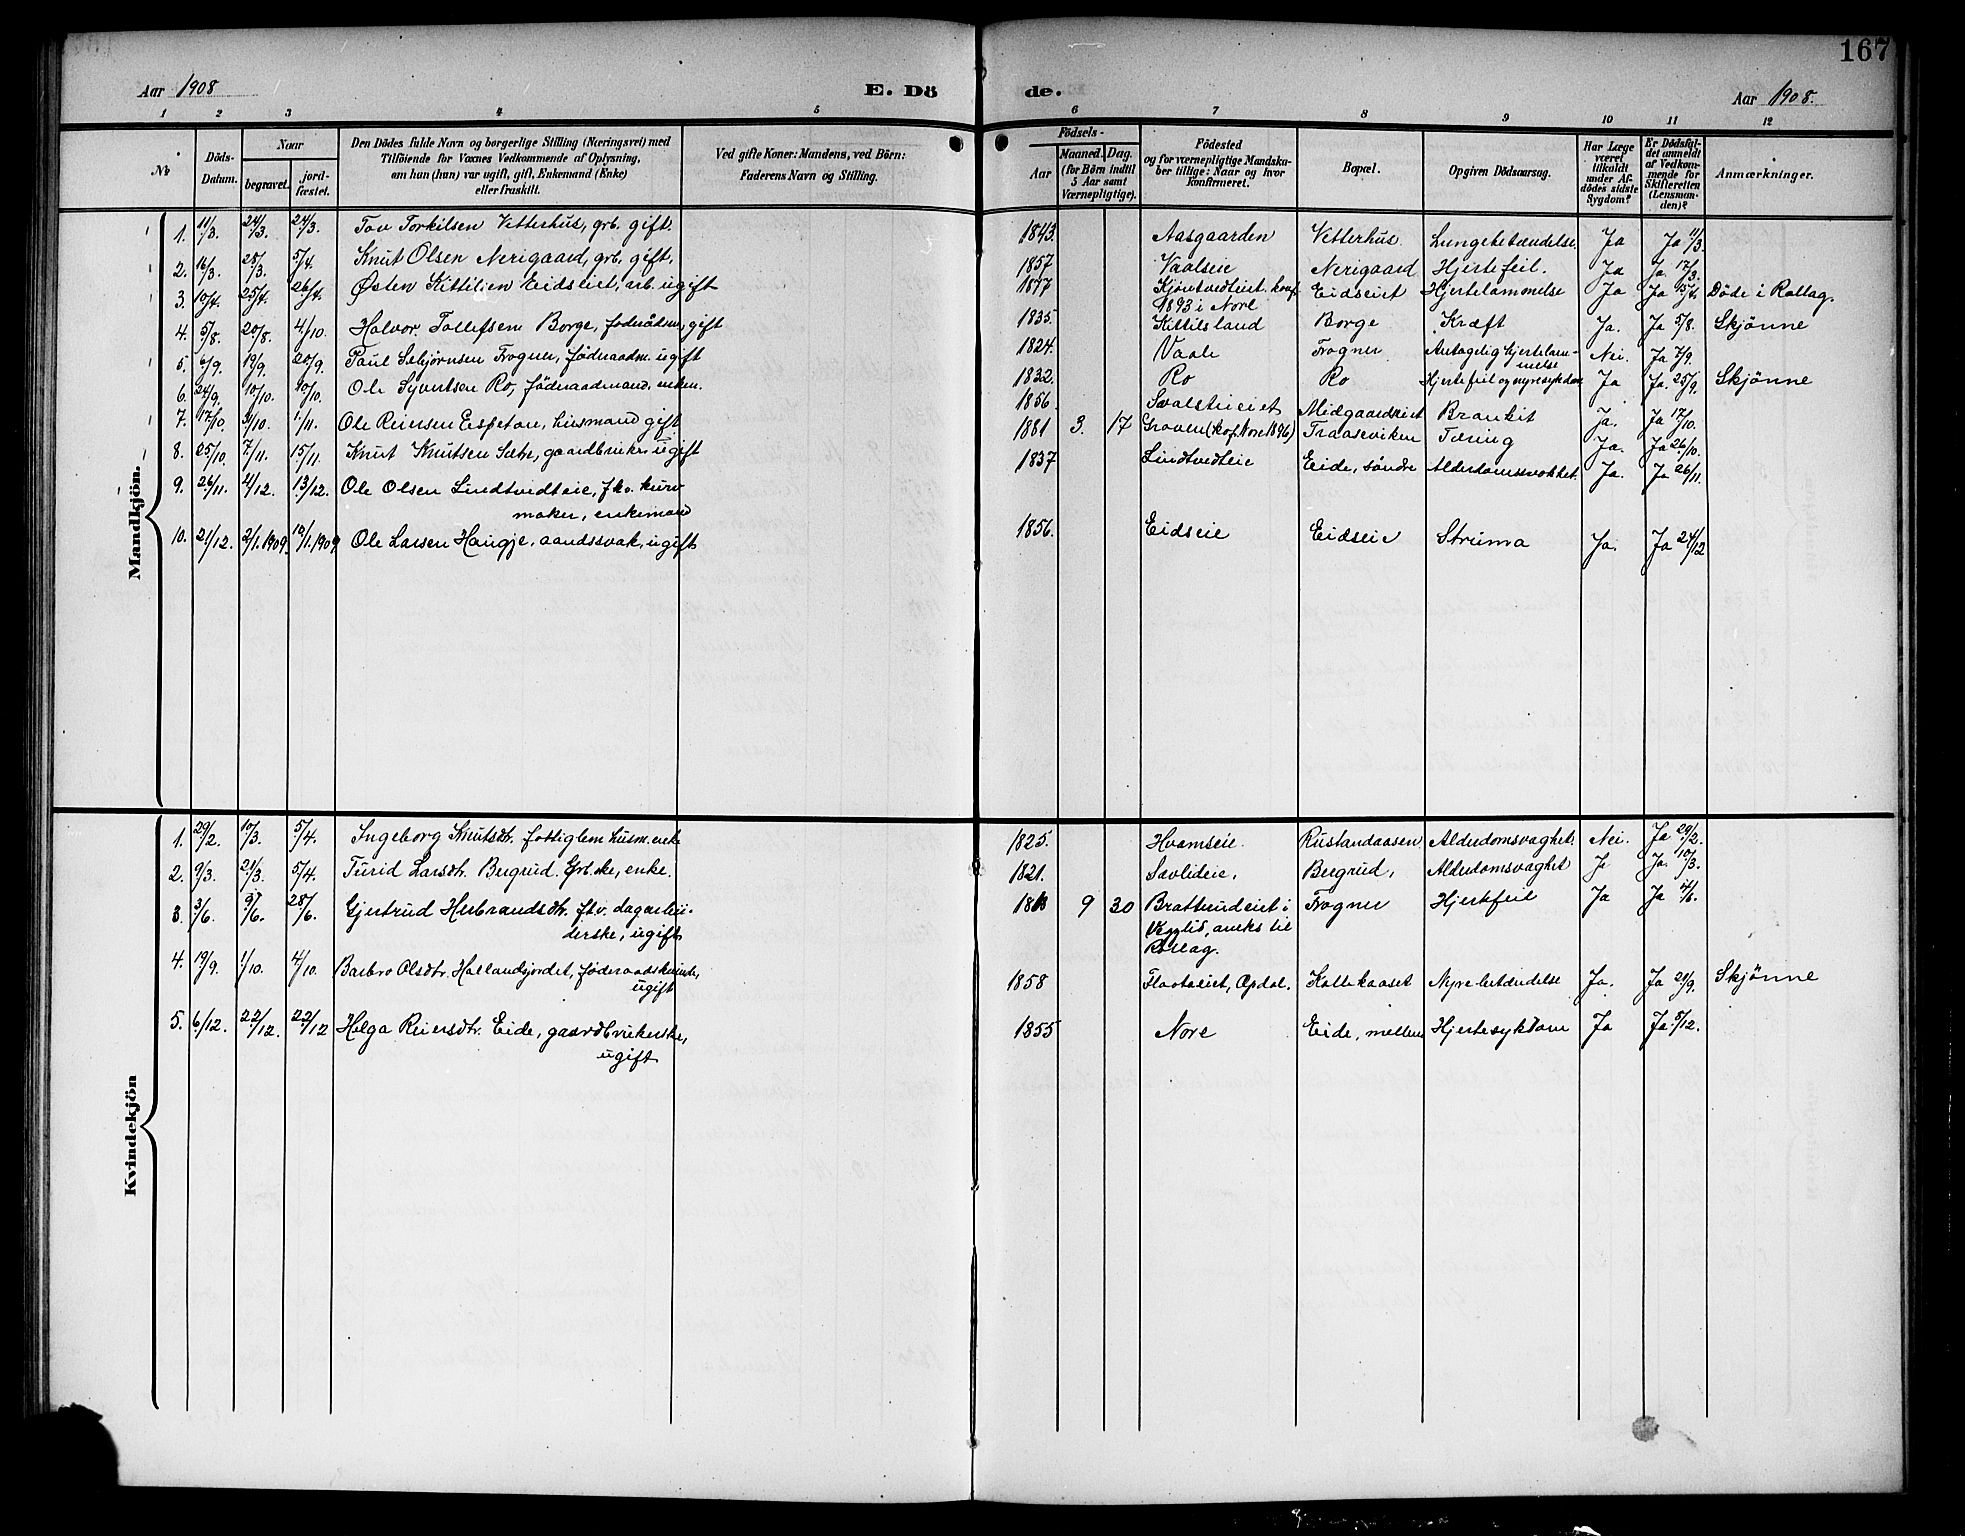 167
Aar 1908
E. Dö
de.
Aar 1908.
1 2 3 4 5 6 7 8 9 10 11 12
№
Döds-
Datum.
Naar
begravet.
jord-
fæstet.
Den Dödes fulde Navn og borgerlige Stilling (Næringsvei) med
Tilföiende for Voxnes Vedkommende af Oplysning,
om han (hun) var ugift, gift, Enkemand (Enke)
eller fraskilt.
Ved gifte Koner: Mandens, ved Börn:
Faderens Navn og Stilling.
Födsels-
Aar
Maaned. Dag.
(for Börn indtil
5 Aar samt
Værnepligtige).
Födested
og for værnepligtige Mandska-
ber tillige: Naar og hvor
konfirmeret.
Bopæl.
Opgiven Dödsaarsag.
Har Læge
været
tilkaldt
under Af-
dödes sidste
Sygdom?
Er Dödsfal-
det anmeldt
af Vedkom-
mende for
Skifteretten
(Lensman-
den)?
Anmærkninger.
Mandkjön.
1. 11/3. 24/3. 24/3. Tov Torkilsen Vetterhus, grb. gift. 1843. Aasgaarden Vetterhus. Lungebetændelse. Ja Ja 11/3.
2. 16/3. 28/3. 5/4. Knut Olsen Nerigaard, grb. gift. 1857. Vaalseie Nerigaard Hjertefeil. Ja Ja 17/3.
3. 10/4. 25/4. 26/4. Østen Kittilsen Eidseiet, arb. ugift 1877 Kjöntvedteiet. konf. Eidseiet Hjertelammelse Ja Ja 15/4. Döde i Rollag.
1893 i Nore
4. 5/8. 20/8. 4/10. Halvor Tollefsen Borge, foderådsm, gift 1835. Kittilsland Borge Kræft Ja. Ja 5/8. Skjönne
5. 6/9. 19/9. 20/9. Paul Sebjörnsen Frogner, föderaadm. ugift 1824. Vaale Frogner Antagelig hjertelam- Nei. Ja 7/9.
melse
6. 24/9. 10/10. 10/10. Ole Syvertsen Ro, föderaadmand, enkem. 1832. Ro Ro Hjertefeil og nyresykdom Ja Ja 25/9. Skjönne
7. 17/10. 31/10. 1/11. Ole Reiersen Espetou, husmand gift 1856. Midgaardseiet Brankit Ja. Ja 17/10.
8. 25/10. 7/11. 15/11. Knut Knutsen Sæbe, gaardbruker ugift 1881 3. 17 Groven (kof. Nore 1896) Traaseviken Tæring Ja. Ja 26/10.
9. 26/11. 4/12. 13/12. Ole Olsen Lindtvedteie, fhv. kurv 1837 Lindtvedteie Eide, söndre Alderdomssvakhet. Ja. Ja 26/11.
maker, enkemand
10. 21/12. 2/1. 1909. 10/1. 1909 Ole Larsen Haugje, aandssvak, ugift 1856. Eidseie Eidseie Struma Ja. Ja 24/12
Kvindekjön
1. 29/2. 10/3. 5/4. Ingeborg Knutsdtr. fattiglem husm. enke 1825. Hvamseie. Rustandaasen Alderdomsvaghet. Nei. Ja 29/2.
2. 9/3. 21/3. 5/4. Turid Larsdtr. Bergrud. Grb.ske, enke. 1821. Savlideie. Bergrud, Alderdomsvaghet Ja Ja. 10/3.
3. 3/6. 9/6. 28/6. Gjertrud Herbrandsdtr. fhv. dagarbei- 9 30 Bratterudeiet i Frogner Hjertefeil Ja Ja 4/6.
derske, ugift Vegglid, aneks til
Rollag.
4. 19/9. 1/10. 4/10. Barbro Olsdtr. Hallandsjordet, föderaadskvinde, 1858 Flaatoeiet, Opdal. Kallekaaset Nyrebetændelse Ja. Ja 21/9. Skjönne
ugift
5. 6/12. 22/12. 22/12 Helga Reiersdtr. Eide, gaardbrukerske, 1855 Nore Eide, mellem Hjertesykdom Ja Ja 8/12.
ugift